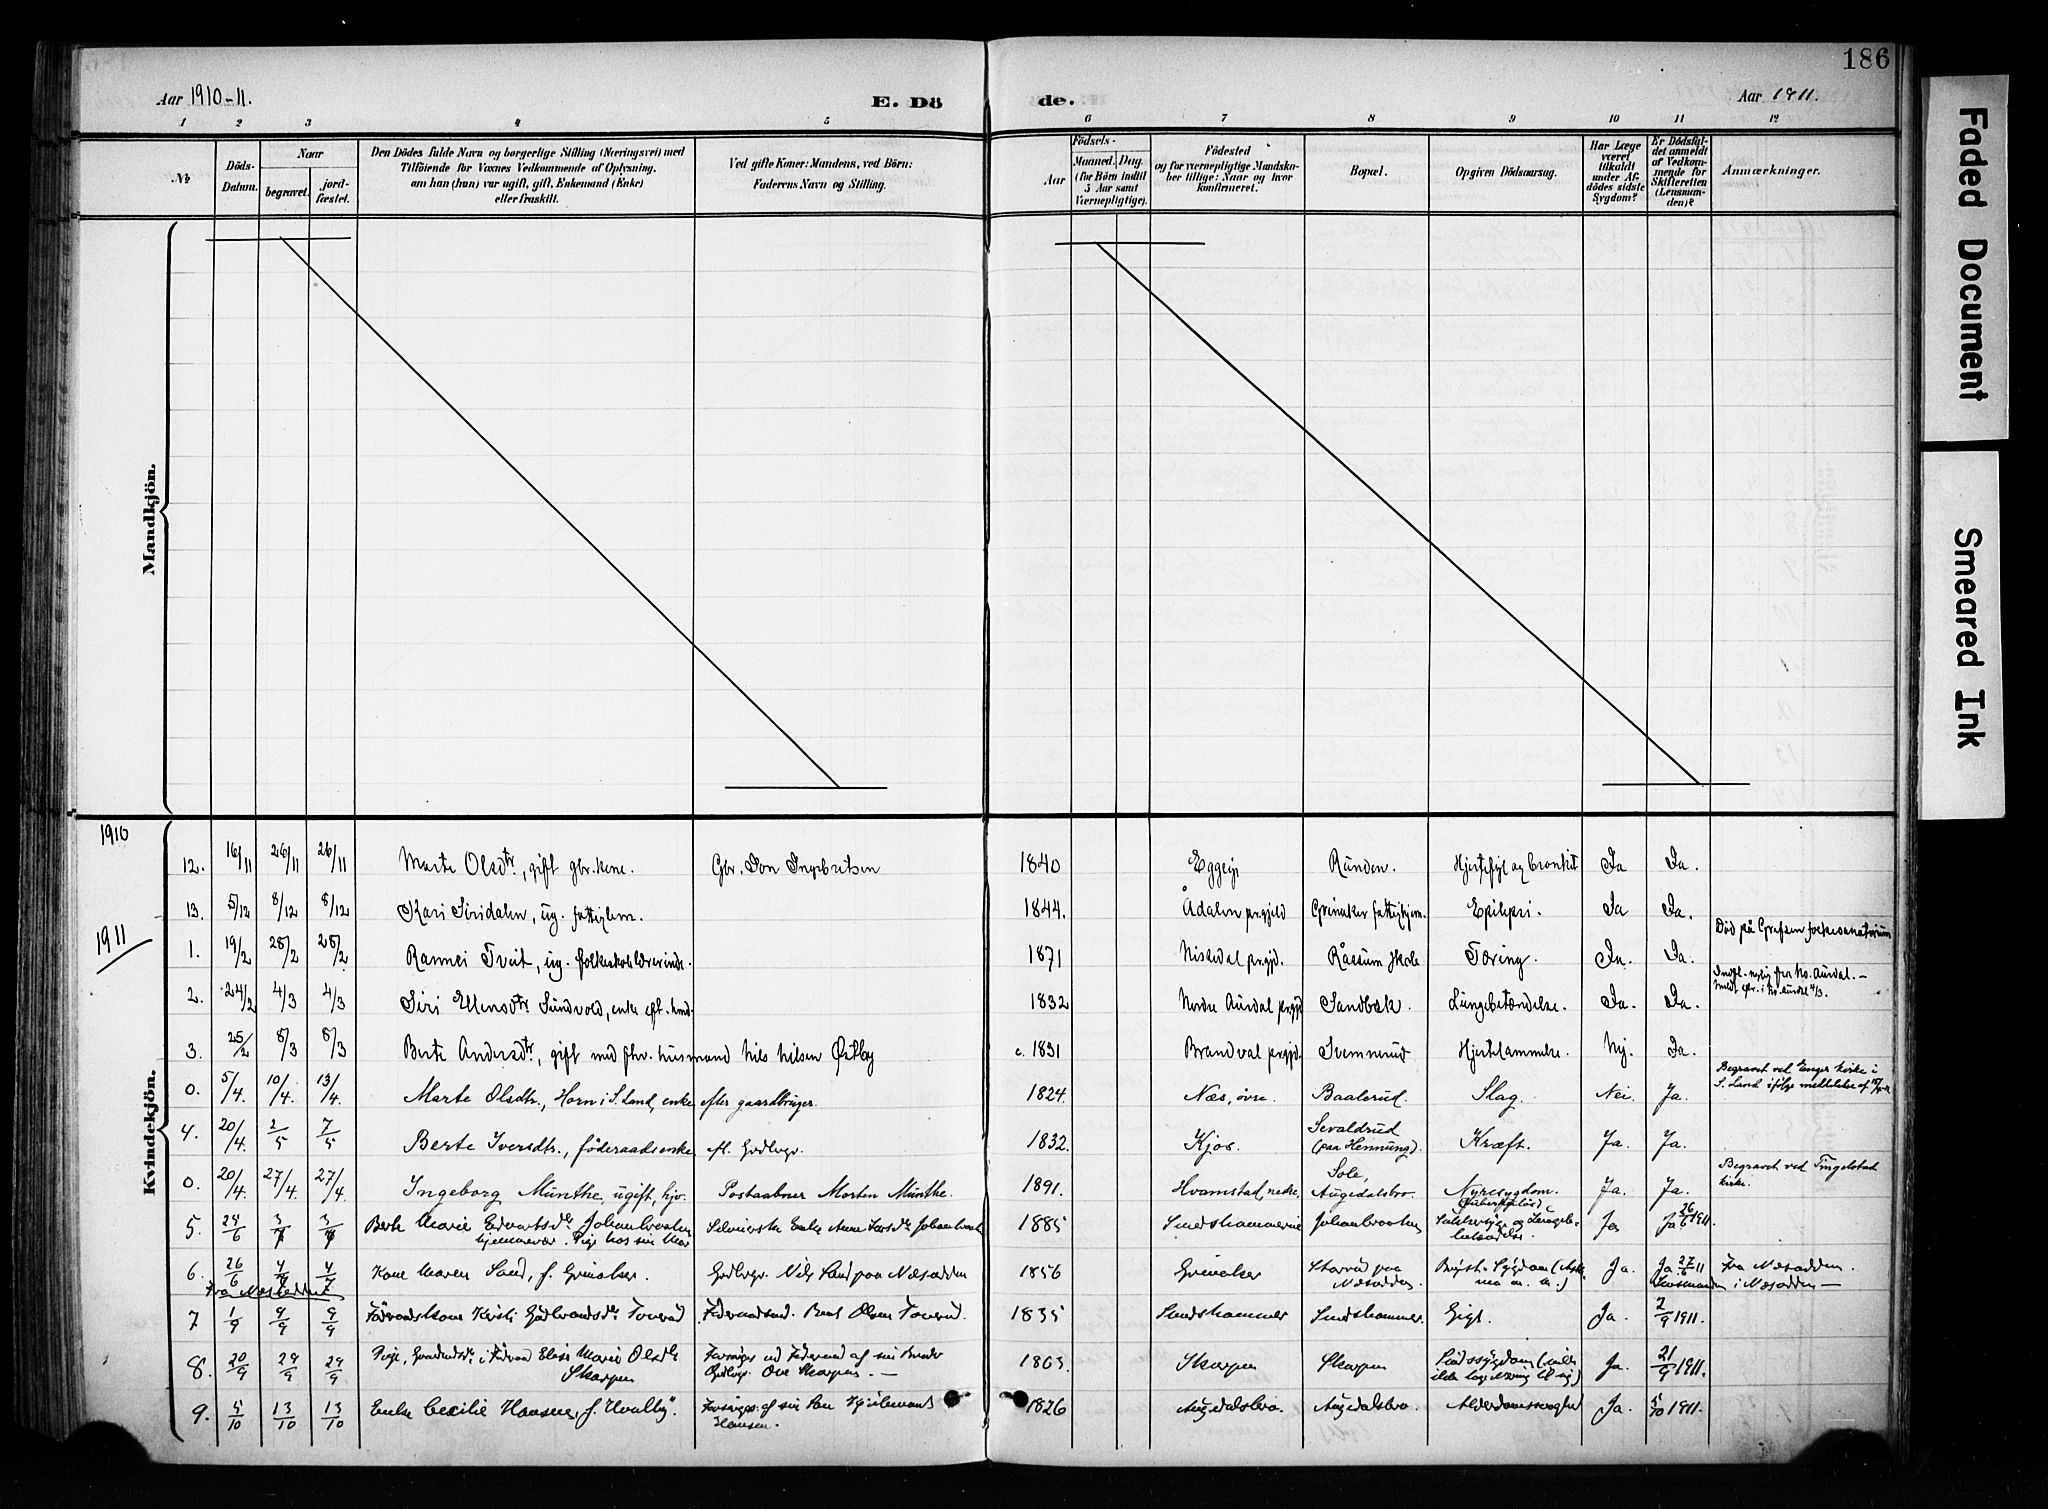 186
Aar 1910-11.
E. Dö
de.
Aar 1911.
1 2 3 4 5 6 7 8 9 10 11 12
No
Döds-Datum.
Naar
begravet.
jord-fæstet.
Den Dödes fulde Navn og borgerlige Stilling (Næringsvei) med
Tilföiende for Voxnes Vedkommende af Oplysning,
om han (hun) var ugift, gift, Enkemand (Enke)
eller fraskilt.
Ved gifte Koner: Mandens, ved Börn:
Faderens Navn og Stilling.
Födsels-
Aar
Maaned. Dag.
(for Börn indtil
5 Aar samt
Værnepligtige).
Födested
og for værnepligtige Mandska-
ber tillige: Naar og hvor
konfirmeret.
Bopæl.
Opgiven Dödsaarsag.
Har Læge
været
tilkaldt
under Af-
dödes sidste
Sygdom?
Er Dödsfal-
det anmeldt
af Vedkom-
mende for
Skifteretten
(Lensman-
den)?
Anmærkninger.
Mandkjön.
Kvindekjön.
1910
12. 16/11 26/11 26/11 Marte Olsdtr, gift gbr. kone. Gbr. Jon Ingebretsen 1840 Eggeeje Runden. Hjertefejl og bronkit Ja Ja.
13. 5/12 8/12 8/12 Kari Siridalen, ug. fattiglem. 1844. Ådalen prgjeld Grinaker fattighjem. Epilepsi. Ja Ja.
1911
1. 19/2 28/2 28/2 Rannei Tveit, ug. folkeskolelærerinde. 1871 Nissedal prgjd. Råssum skole Tæring. Ja. Ja. Død på Grefsen folkesanatorium
2. 24/2 4/3 4/3 Siri Ellensdtr Sundvold, enke eft. 1832 Nordre Aurdal prgjd Sandbæk. Lungebetændelse. Ja. Ja. fra No. Aurdal. - i No. Aurdal 4/3.
3. 25/2 8/3 8/3 Berte Andersdtr, gift med fhr. husmand Nils Nilsen Østby c. 1831 Brandval prgjd. Svennerud Hjertelammelse. Nej. Ja.
0. 5/4. 10/4. 13/4. Marte Olsdtr., Horn i S. Land, enke efter gaardbruger. 1824. Næs, øvre. Baalerud. Slag. Nei. Ja. Begravet ved Enger kirke i S. Land ifølge meddelelse af
4. 20/4. 2/5 7/5 Berte Iversdtr., föderaadsenke ef. Grdbrgr. 1832. Kjos. Sevaldrud (paa Hennung). Kræft. Ja. Ja.
0. 20/4. 27/4. 27/4. Ingeborg Münthe, ugift, hjv. Postaabner Morten Münthe. 1891. Hvamstad, nedre, Sole, Augedalsbro. Nyresygdom. (tuberkuløs) Ja. Ja. Begravet ved Tingelstad kirke.
5. 24/6 3/7 3/7 Berte Marie Edvartsdr Johansbraaten hjemmevær. Pige hos sin Mor Selveierske Enke Anne Larsdr Johansbraaten 1885 Smedshammerеie Johansbraaten Sukkersyge og Lungebetændelse. Ja Ja 26/6 1911.
6. 26/6 4/7 4/7 Kone Maren Sand, f. Grinaker. Grdbrgr. Nils Sand paa Næsodden 1856 Grinaker Storrud paa Næsodden. Bright. Sygdom (Astma m. m.) Ja. Ja 27/6 11 Lensmanden i Næsodden - Fra Næsodden.
Fra Næsodden
7 1/9 9/9 9/9 Föderaadskone Kersti Gudbrandsdr Toverud Föderaadsmd. Bent Olsen Toverud. 1835 Smedshammer Smedshammer. Gigt. Ja. 2/9 1911.
8. 20/9 29/9 29/9 Pige, Gaardmdsdr. i Föderaad Elise Marie Olsdr Skarpen Forsörges ved Föderaad af sin Broder Grdbrgr. Ove Skarpen. - 1863. Skarpen Skarpen Sindssygdom Ja. 21/9 1911.
9. 4/10 13/10 13/10 Enke Cecilie Hansen, f. Hvalby. Forsörges af sin Sön Hansen. 1826 Augedalsbro. Augedalsbro. Alderdomssvaghed Ja. 5/10 1911.
Faded Document
Smeared Ink